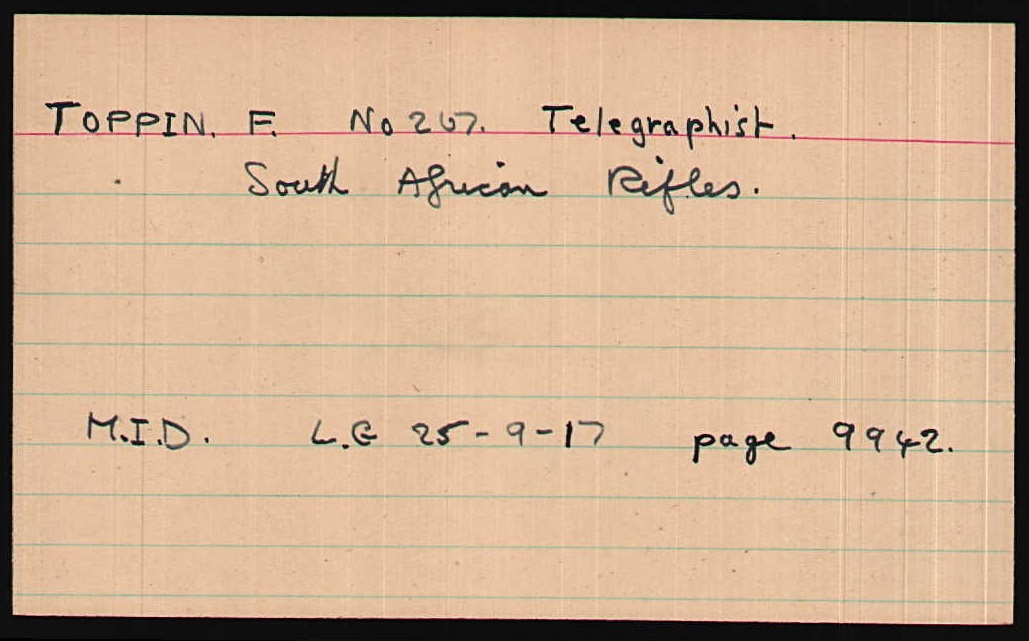 TOPPIN. F. No 267. Telegraphist.
South African Rifles.
M.I.D. L.G 25-9-17 page 9942.